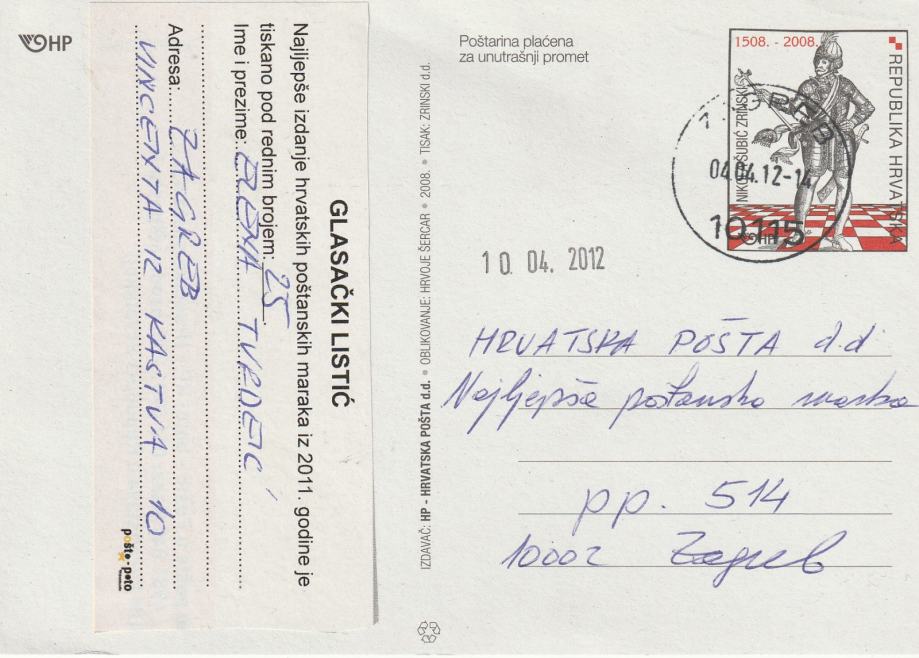 HP
GLASAČKI LISTIĆ
Najljepše izdanje hrvatskih poštanskih maraka iz 2011. godine je
tiskano pod rednim brojem: 25.
Ime i prezime: ELENA TVRDEIĆ
Adresa: ZAGREB
VINCENTA IZ KASTVA 10
pošte-poto
IZDAVAČ: HP - HRVATSKA POŠTA d.d. • OBLIKOVANJE: HRVOJE ŠERCAR • 2008. • TISAK: ZRINSKI d.d.
Poštarina plaćena
za unutrašnji promet
1508. - 2008.
REPUBLIKA HRVATSKA
NIKOLA ŠUBIĆ ZRINSKI
HP
04.04.12-14
10115
10. 04. 2012
HRVATSKA POŠTA d.d
Najljepša poštanska marka
pp. 514
10002 Zagreb